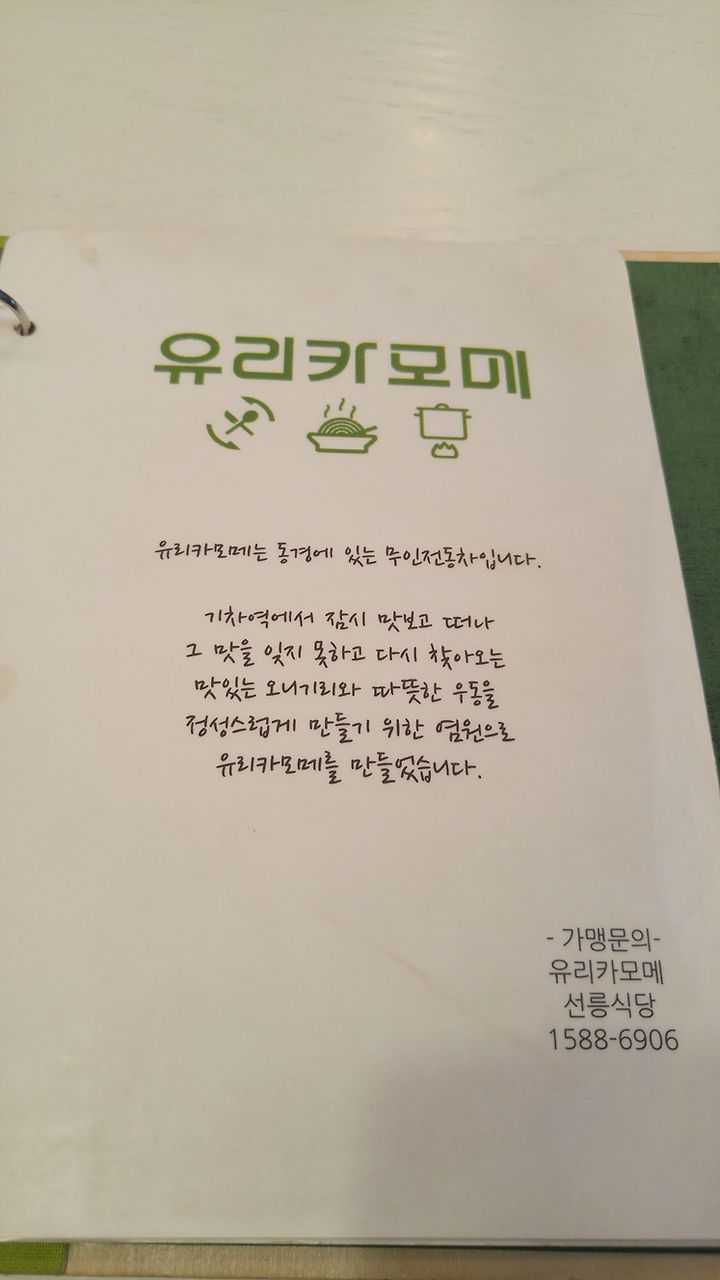 유리카모메
유리카모메는 동경에 있는 무인전동차입니다.
기차역에서 잠시 맛보고 떠나
그 맛을 잊지 못하고 다시 찾아오는
맛있는 오니기리와 따뜻한 우동을
정성스럽게 만들기 위한 염원으로
유리카모메를 만들었습니다.
- 가맹문의-
유리카모메
선릉식당
1588-6906